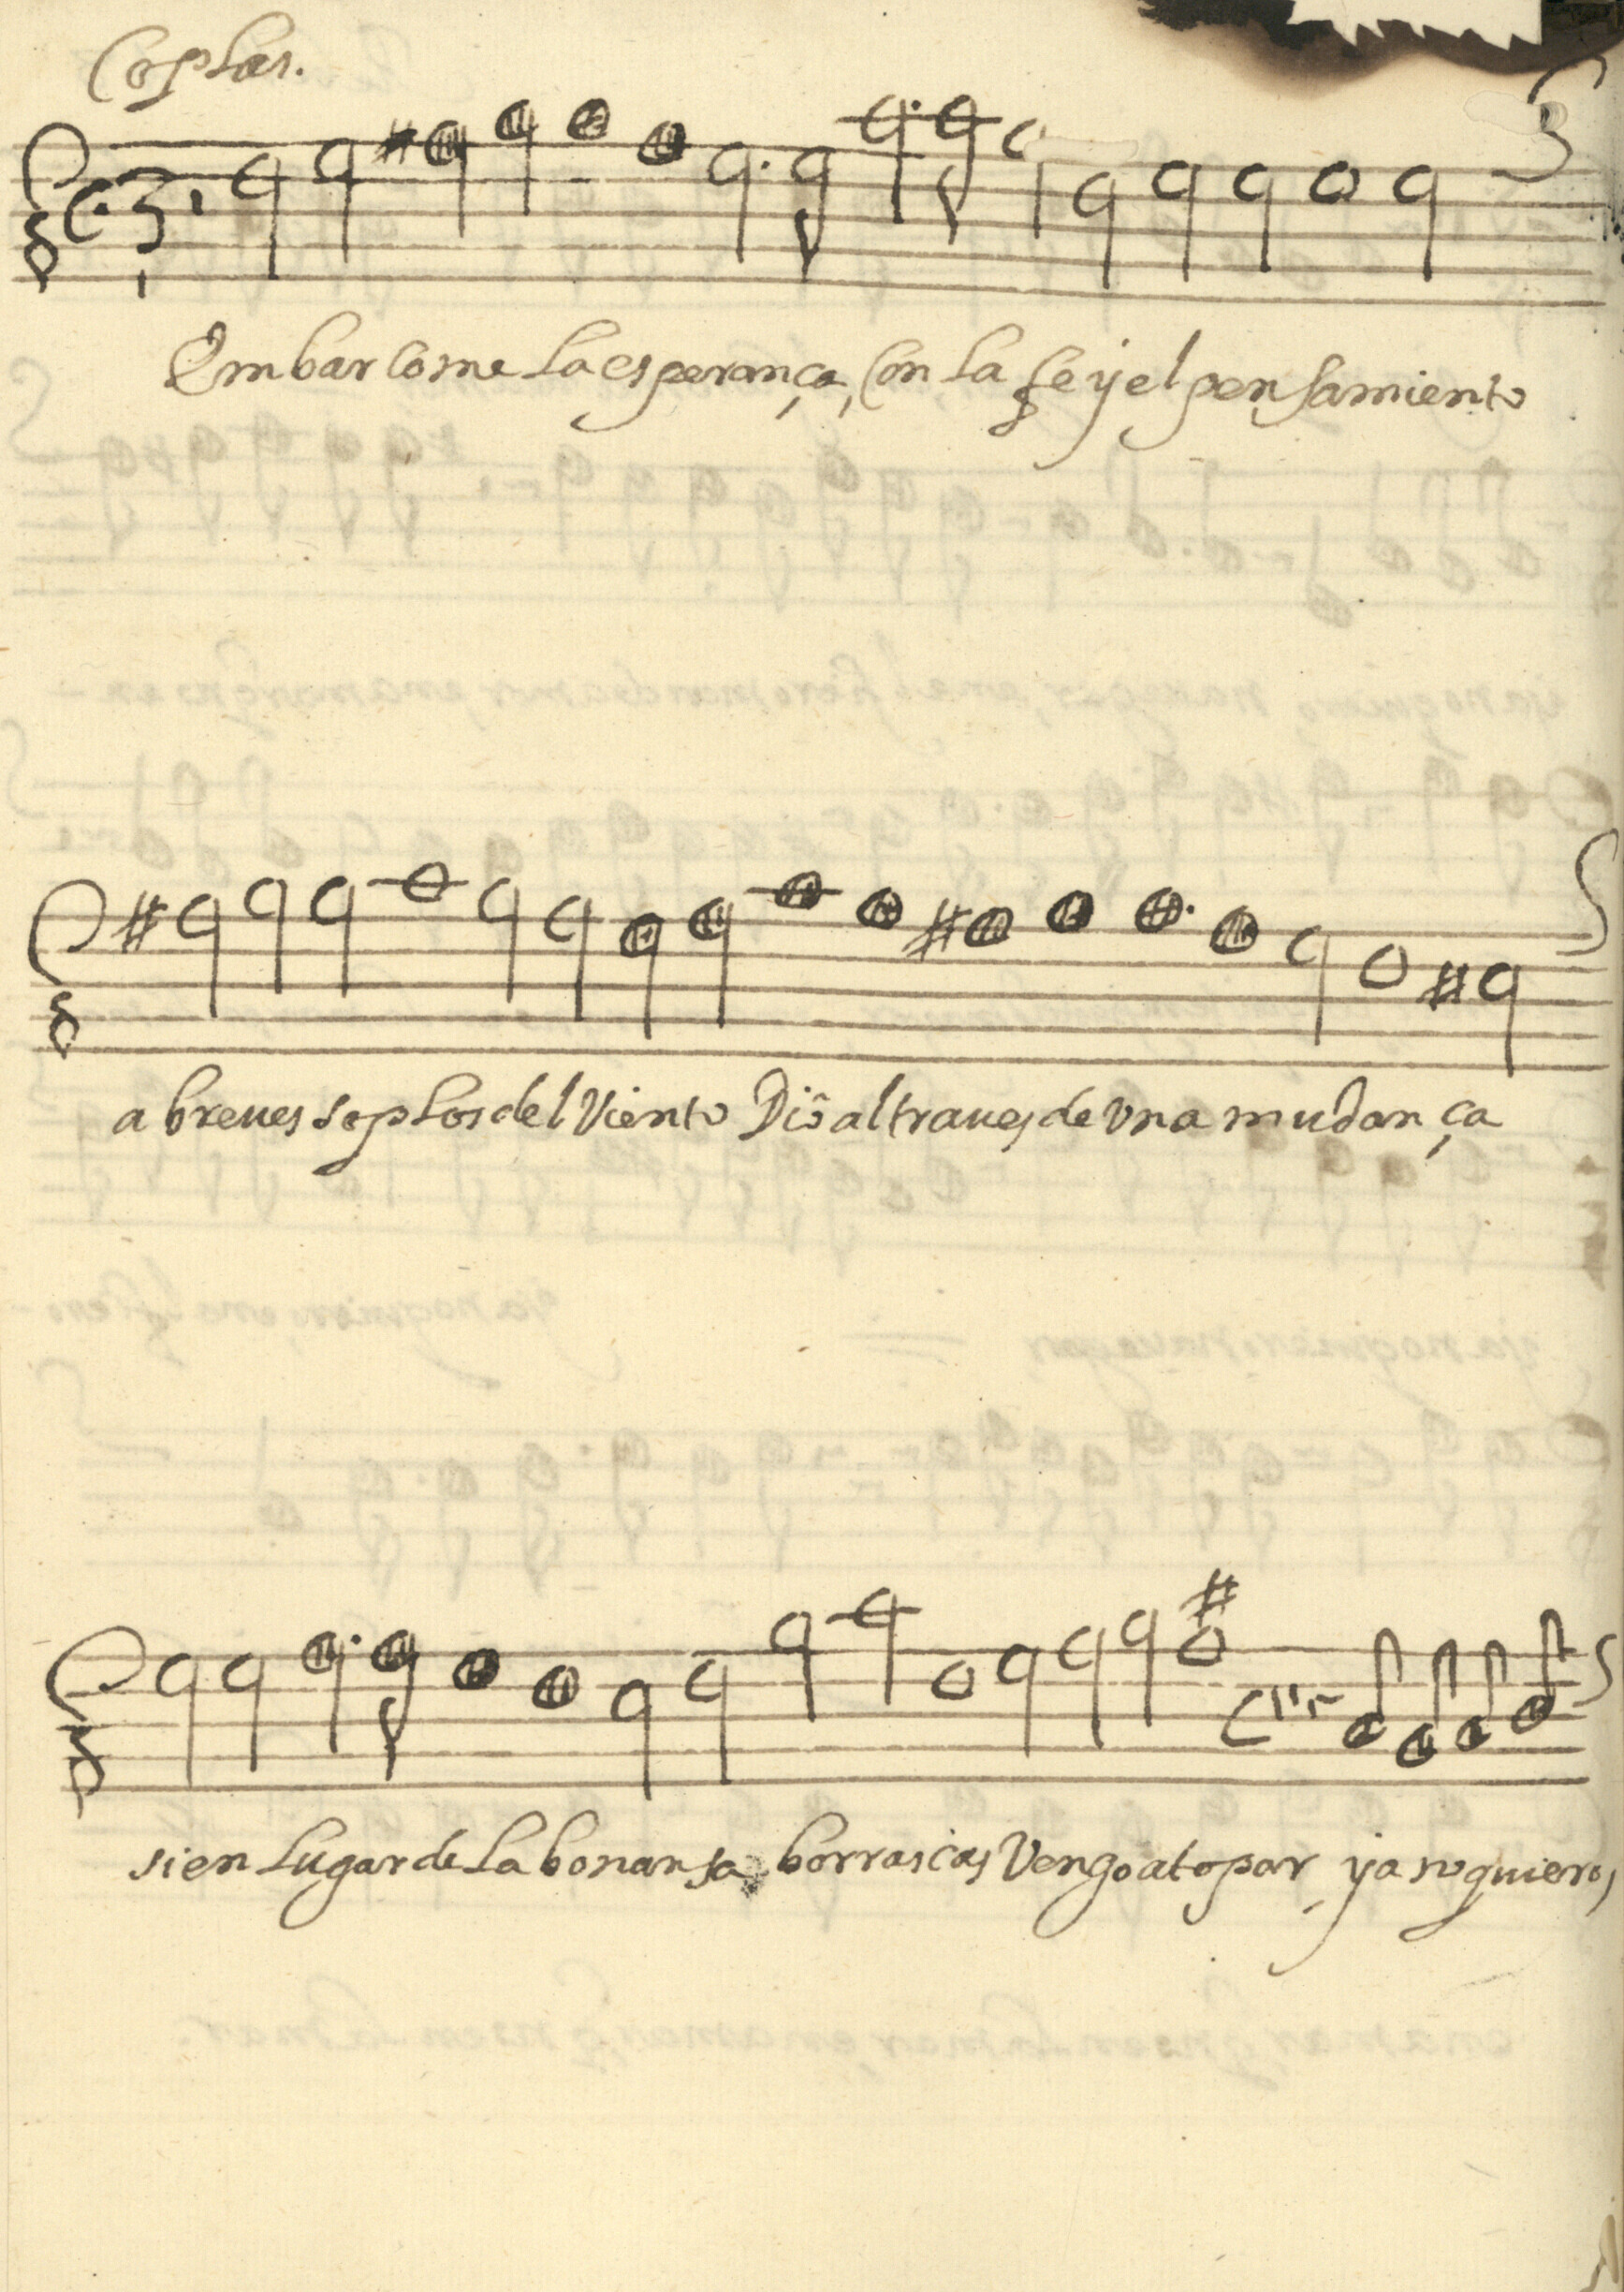 Coplas.
Embarcome la esperança, Con la fe y el pensamiento
a breues soplos del Viento Diò al traues de Vna mudança
si en lugar de la bonansa borrascas Vengo a topar ya no quiero,